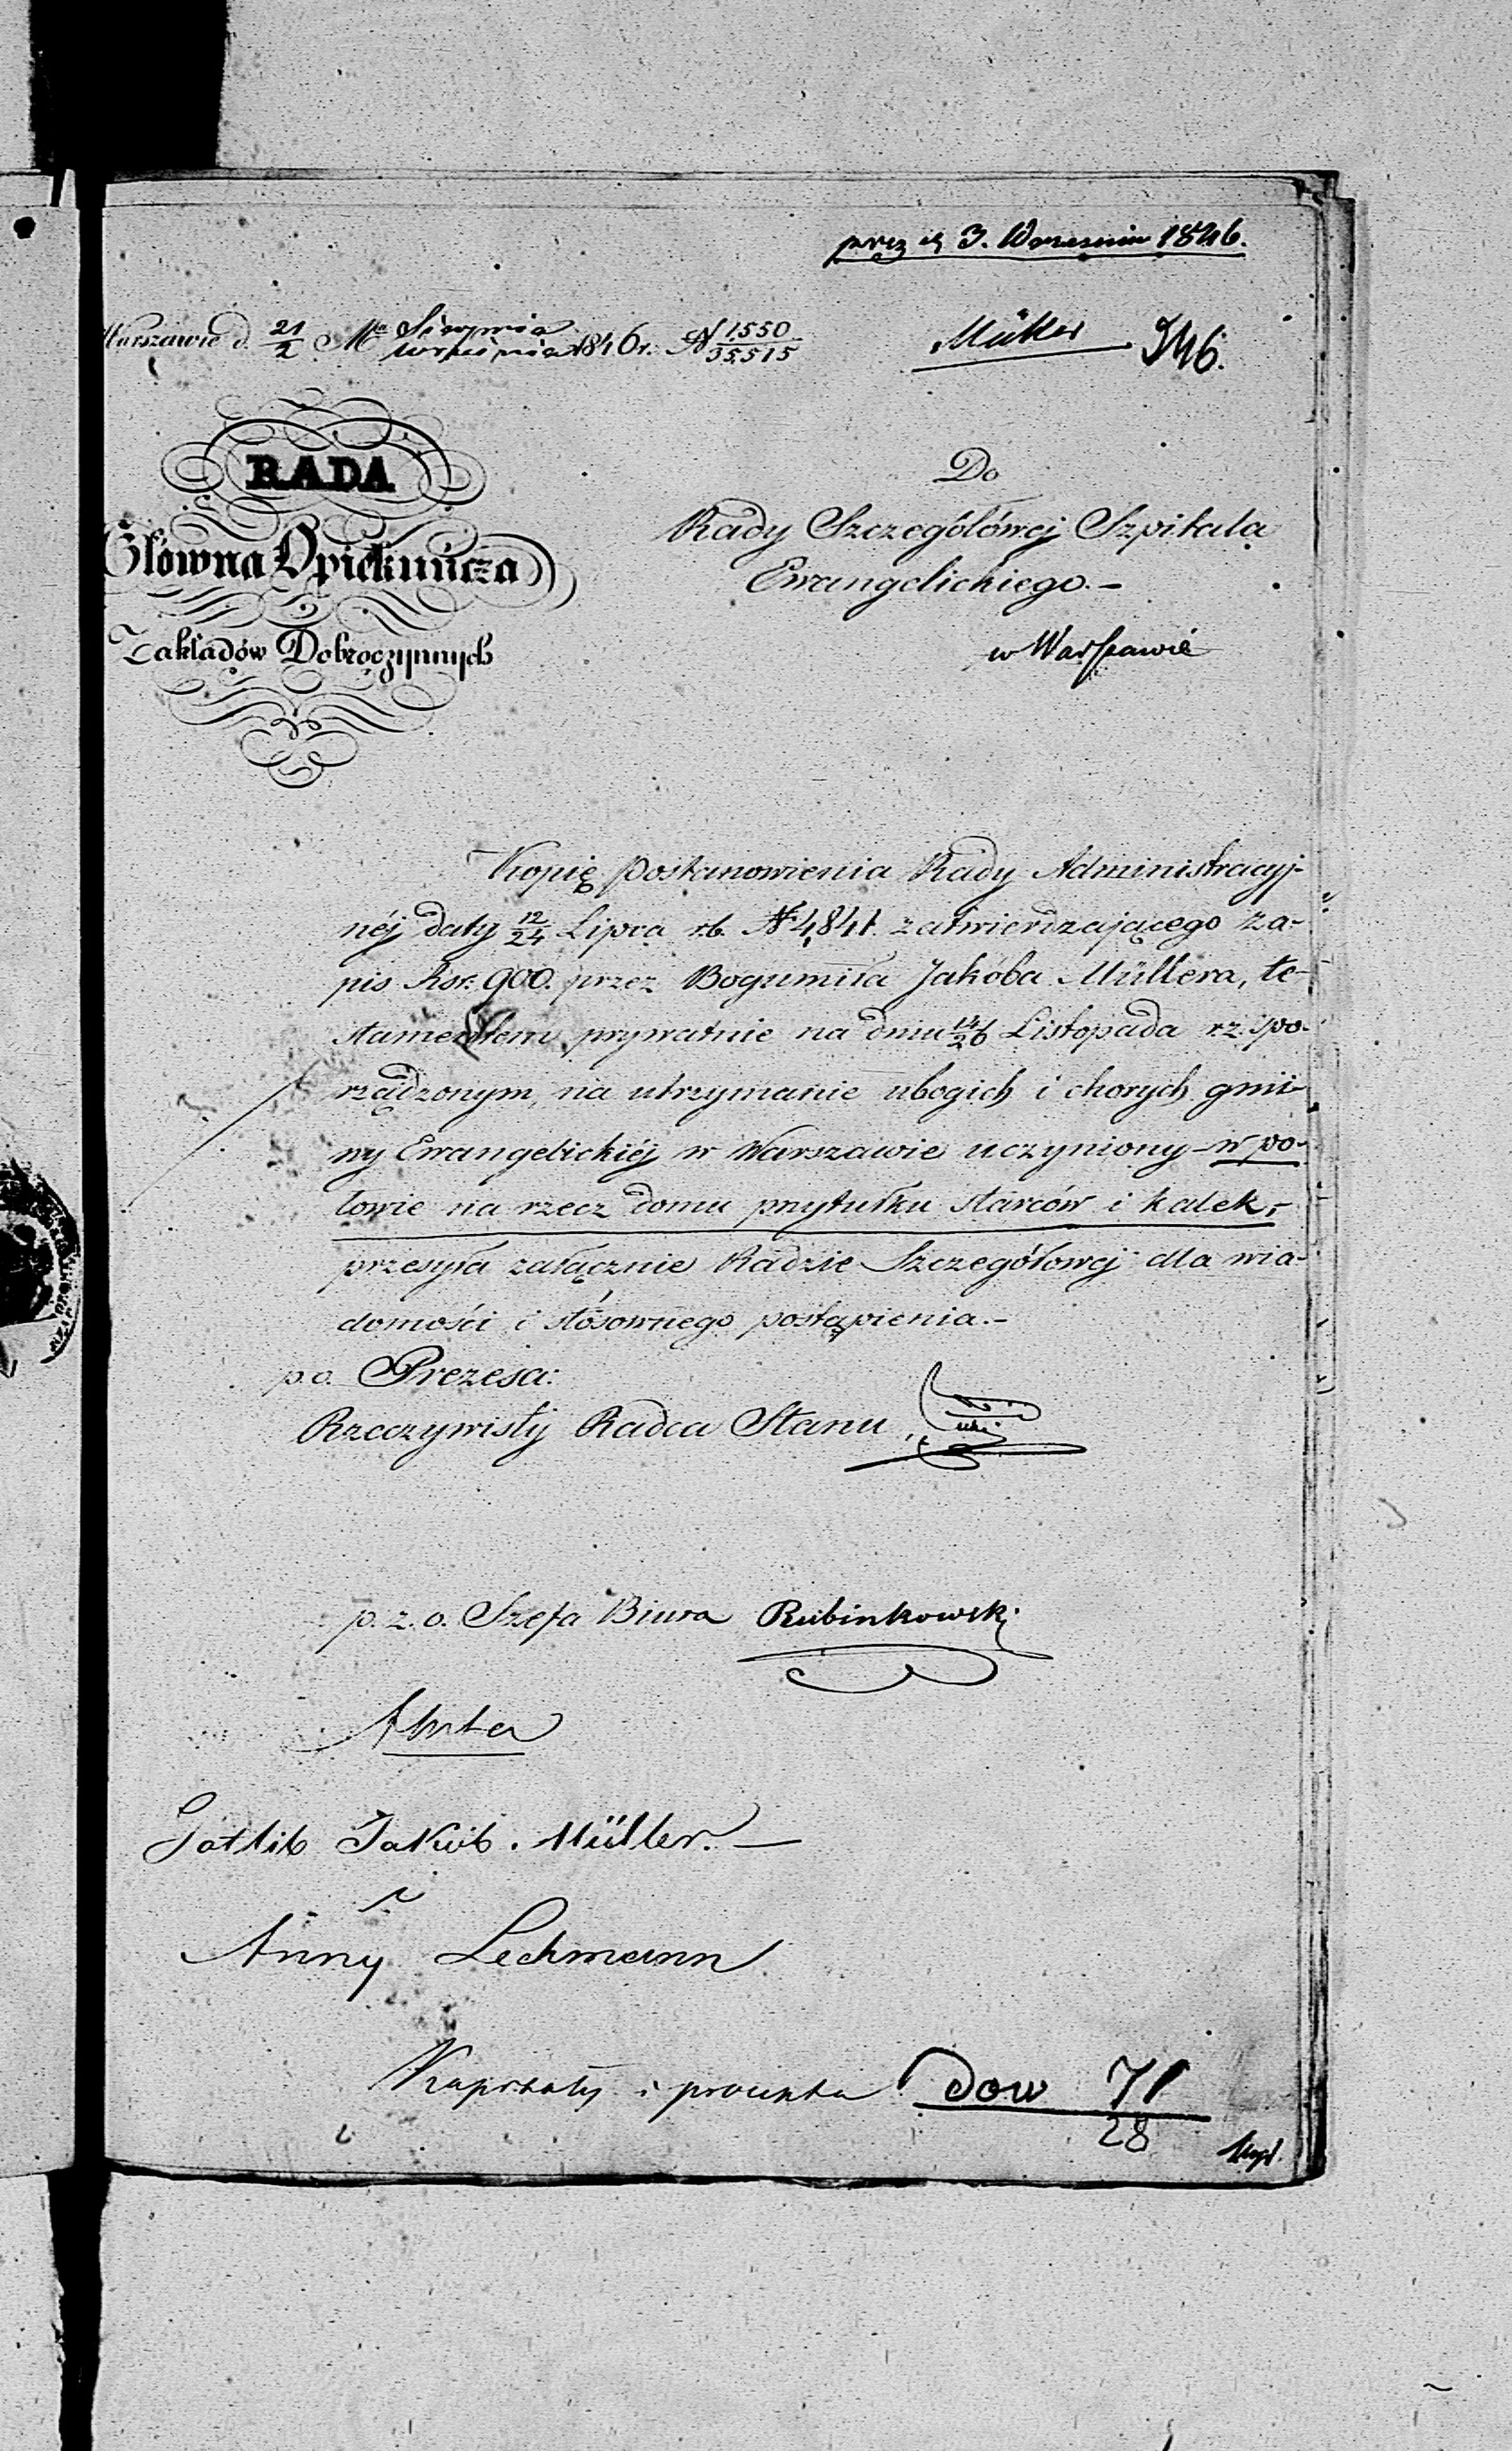 prez d 3. Wrzesnia 1846.
Warszawie d. 21/2 Mca Sierpnia/Września 1846 r. N 1550/35515
Müller 946.
RADA
Główna Opiekuńcza
Zakładów Dobroczynnych
Do
Rady Szczegółówej Szpitala
Ewangelickiego.-
w Warszawie
Kopię Postanowienia Rady Administracyj-
néj daty 12/24 Lipca r.b. N 4,841. zatwierdzającego za-
pis Rsr. 900. przez Bogumiła Jakóba Müllera, te-
stamentem prywatnie na dniu 14/26 Listopada r.z. spo-
rządzonym, na utrzymanie ubogich i chorych gmi-
ny Ewangelickiéj w Warszawie uczyniony - w po-
łowie na rzecz domu przytułku starców i kalek,-
przesyła załącznie Radzie Szczegółowej dla wia-
domości i stósownego postąpienia.-
p.o. Prezesa:
Rzeczywisty Radca Stanu,
p. z. o. Szefa Biura Rubinkowski
Akta
Gotlib Jakób. Müller.-
Anny Lechmann
Kapitały i procenta dow 71
28